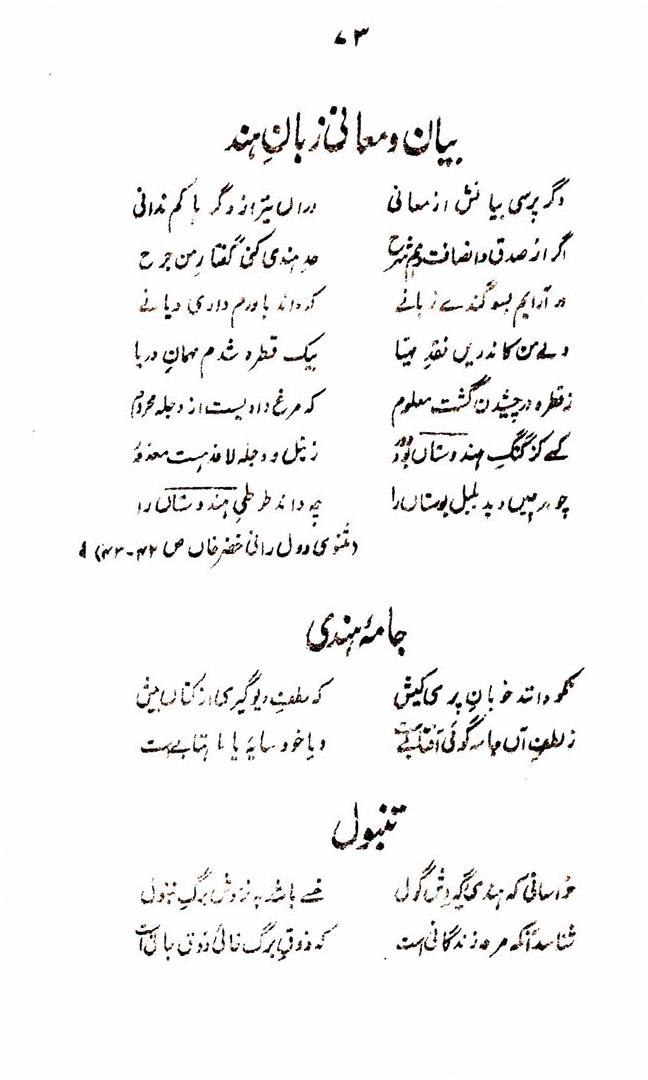 ۷۳
بیان و معانی زبانِ ہند
دگر پرسی بیانش از معانی دراں نیز از دگر ہا کم ندانی
اگر از صدق و انصافت دہم شرح حدِ ہندی کنی گفتارِ من جرح
ور آرایم بسوگندے زبانے کہ داند باورم داری ویانے
ولے من کاندریں نقدِ مہیا بیک قطرہ شدم مہمانِ دریا
ز قطرہ در چشیدن گشت معلوم کہ مرغِ وادیست از دجلہ محروم
کسے کز گنگِ ہندوستاں بود دور ز نیل و دجلہ لافد ہست معذور
چو در چیں دید بلبل بوستاں را چہ داند طوطیِ ہندوستاں را
(مثنوی دول رانی خضر خاں ص ۴۲-۴۳)
جامۂ ہندی
نکو دانند خوبانِ پری کیش کہ لطفِ دیوگیری از کتاں بیش
ز لطف آں جامہ گوئی آفتابیست و یا خود سایہ یا ماہتابیست
تنبول
خراسانی کہ ہندی گیردش گول خسے باشد بہ نزدش برگِ تنبول
شناسد آنکہ مردِ زندگانی است کہ ذوقِ برگ خائی ذوقِ جانی است